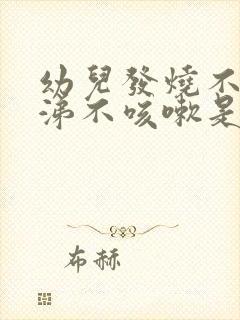 幼兒發燒不
涕不咳嗽是
布赫